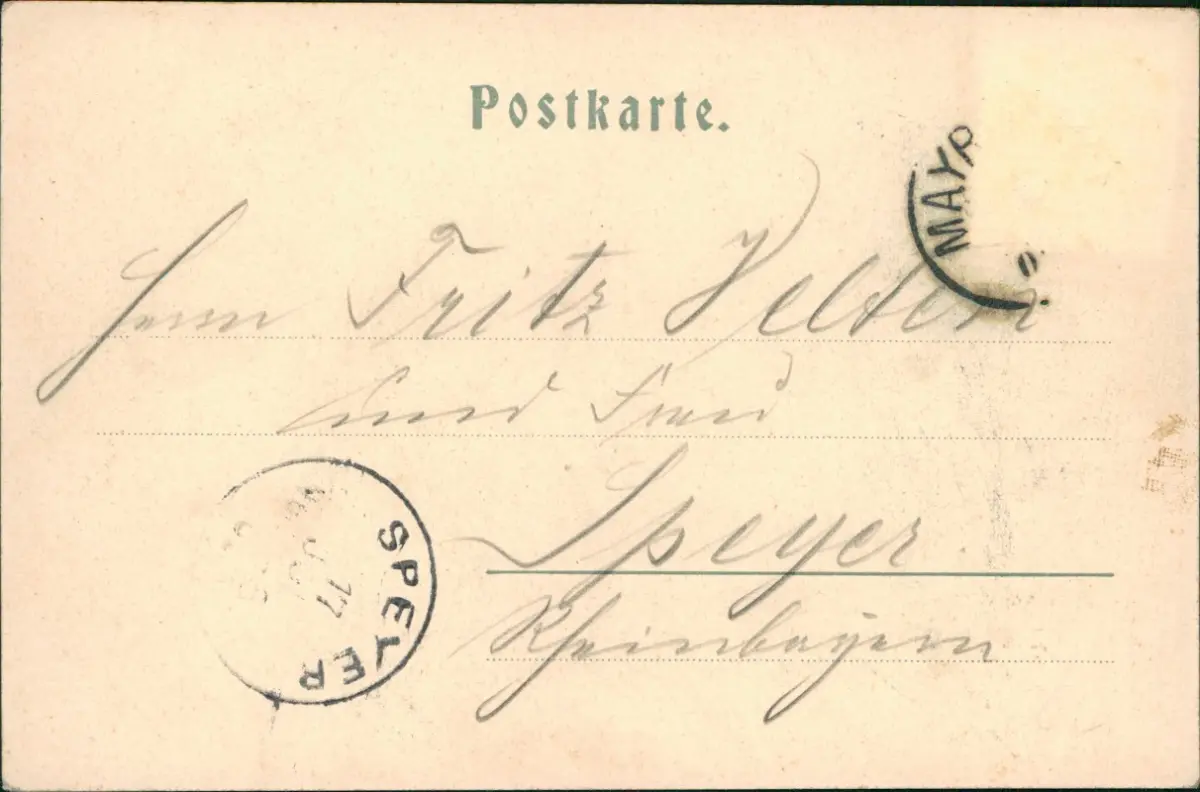 Postkarte.
MAY
Herrn Fritz Velten
und Frau
Speyer
Rheinbayern
SPEYER